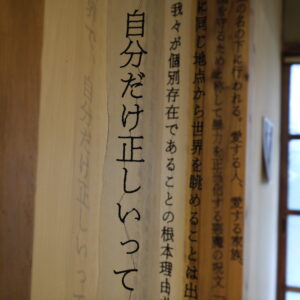 の名の下に行われる、愛する人、愛する家族、
守るため 称して暴力を正当化する悪魔の呪文
に同じ地点から世界を眺めることは出
我々が個別存在であることの根本理由
自分だけ正しいって